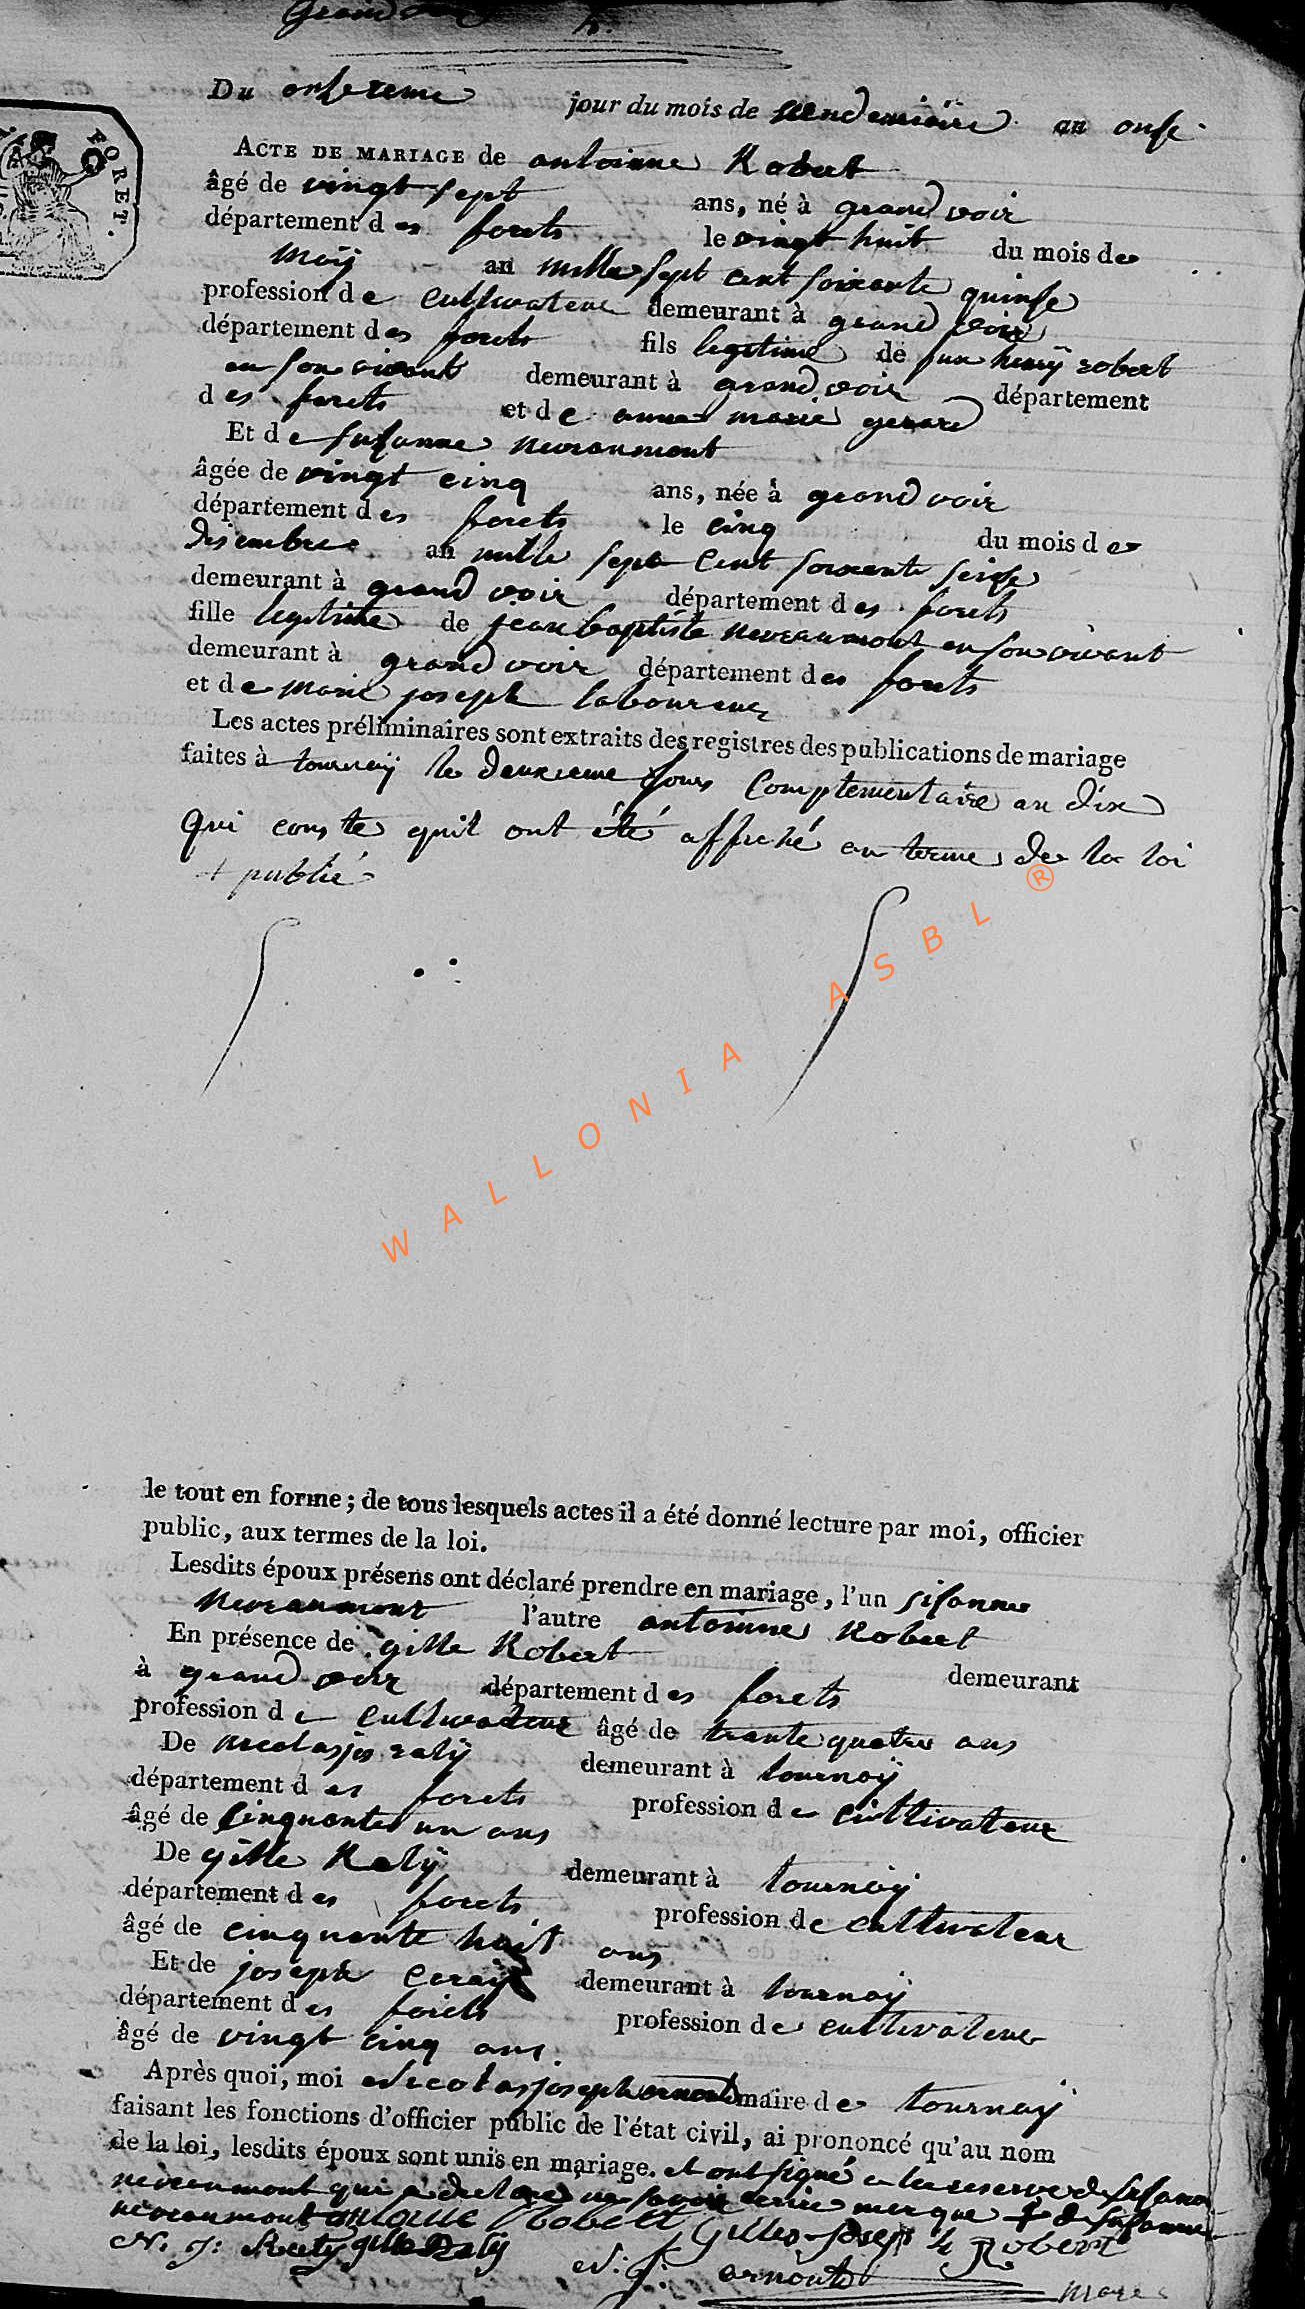 Grandvoir
4.
Du onzieme jour du mois de vendemiaire an onse
FORET.
ACTE DE MARIAGE de antoinne Robert
âgé de vingt sept ans, né à grand voir
département des forets le vingt huit du mois de
may an mille sept cent soixante quinse
profession de cultivateur demeurant à grand voir
département des forets fils legitime de feux henry robert
en son vivant demeurant à grand voir département
des forets et de anne marie gerard
Et de susanne nevraumont
âgée de vingt cinq ans, née à grand voir
département des forets le cinq du mois de
disembre an mille sept cent soixante seise
demeurant à grand voir département des forets
fille legitime de jean baptiste nevraumont en son vivant
demeurant à grand voir département des forets
et de marie joseph laboureur
Les actes préliminaires sont extraits des registres des publications de mariage
faites à tournay le deuxieme jours complementaire an dix
qui conste quil ont été affiché au terme de la loi
+ publié
WALLONIA ASBL ®
le tout en forme ; de tous lesquels actes il a été donné lecture par moi, officier
public, aux termes de la loi.
Lesdits époux présens ont déclaré prendre en mariage, l'un sisanne
nevraumont l'autre antoinne Robert
En présence de gille Robert demeurant
à grand voir département des forets
profession de cultivateur âgé de trante quatre ans
De nicolas jos raty demeurant à tournay
département des forets profession de cultivateur
âgé de cinquante un ans
De gille Raty demeurant à tournay
département des forets profession de cultivateur
âgé de cinquante huit ans
Et de joseph demeurant à tournay
département des forets profession de cultivateur
âgé de vingt cinq ans.
Après quoi, moi Nicolas joseph arnould maire de tournay
faisant les fonctions d'officier public de l'état civil, ai prononcé qu'au nom
de la loi, lesdits époux sont unis en mariage. et ont signé a la reserve de susanne
nevraumont qui a declaré ne savoir ecrire merque + de susanne
nevraumont Robert Gilles joseph Robert
N. J: Raty gille Raty N: J: arnould maire